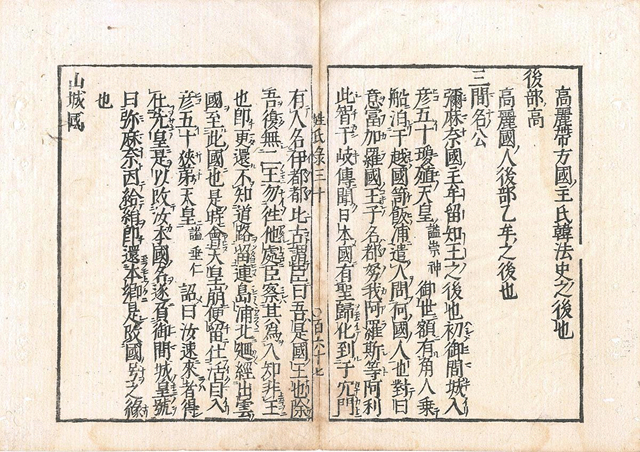 高麗帶方國主氏韓法史之後也
後部高
高麗國人後部乙牟之後也
三間名公
彌麻奈國主牟留知王之後也初御間城入
彦五十瓊殖天皇 謚崇神 御世額有角人乗
船泊于越國笥飯浦遣人問何國人也對曰
意富加羅國王子名都努我阿羅斯等阿利
此智干岐傳聞日本國有聖歸化到于穴門
姓氏錄三十 百六十七
有人名伊都都比古謂臣曰吾是國王也除
吾復無二王勿往他處臣察其為人知非王
也即更還不知道路留連島浦北廻經出雲
國至此國也是時會天皇崩便留仕活目入
彦五十狹茅天皇 謚垂仁 詔曰汝速來者得
仕先皇是以改汝本國名遂負御間城皇號
曰弥麻奈因給絹即還本郷是改國号之縁
也
山城國